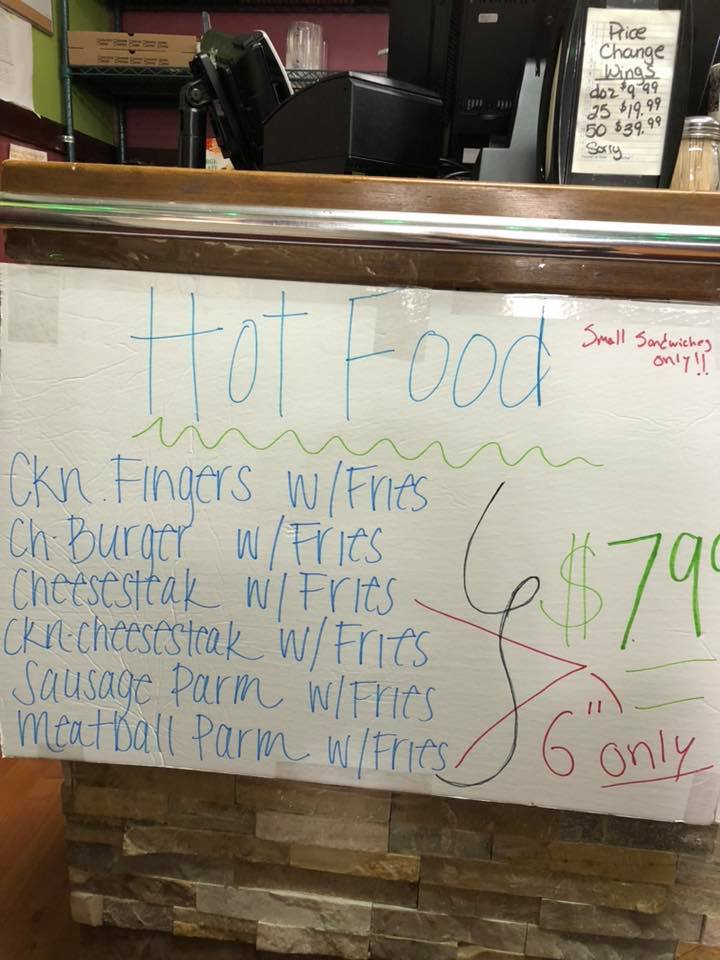 Price
Change
Wings
doz $9.99
25 $19.99
50 $39.99
Sorry
Hot Food
Small Sandwiches
only!!
Ckn. Fingers w/Fries
Ch. Burger w/Fries
Cheesesteak w/Fries
Ckn. cheesesteak w/Fries
Sausage Parm w/Fries
Meatball Parm w/Fries
$799
6" only